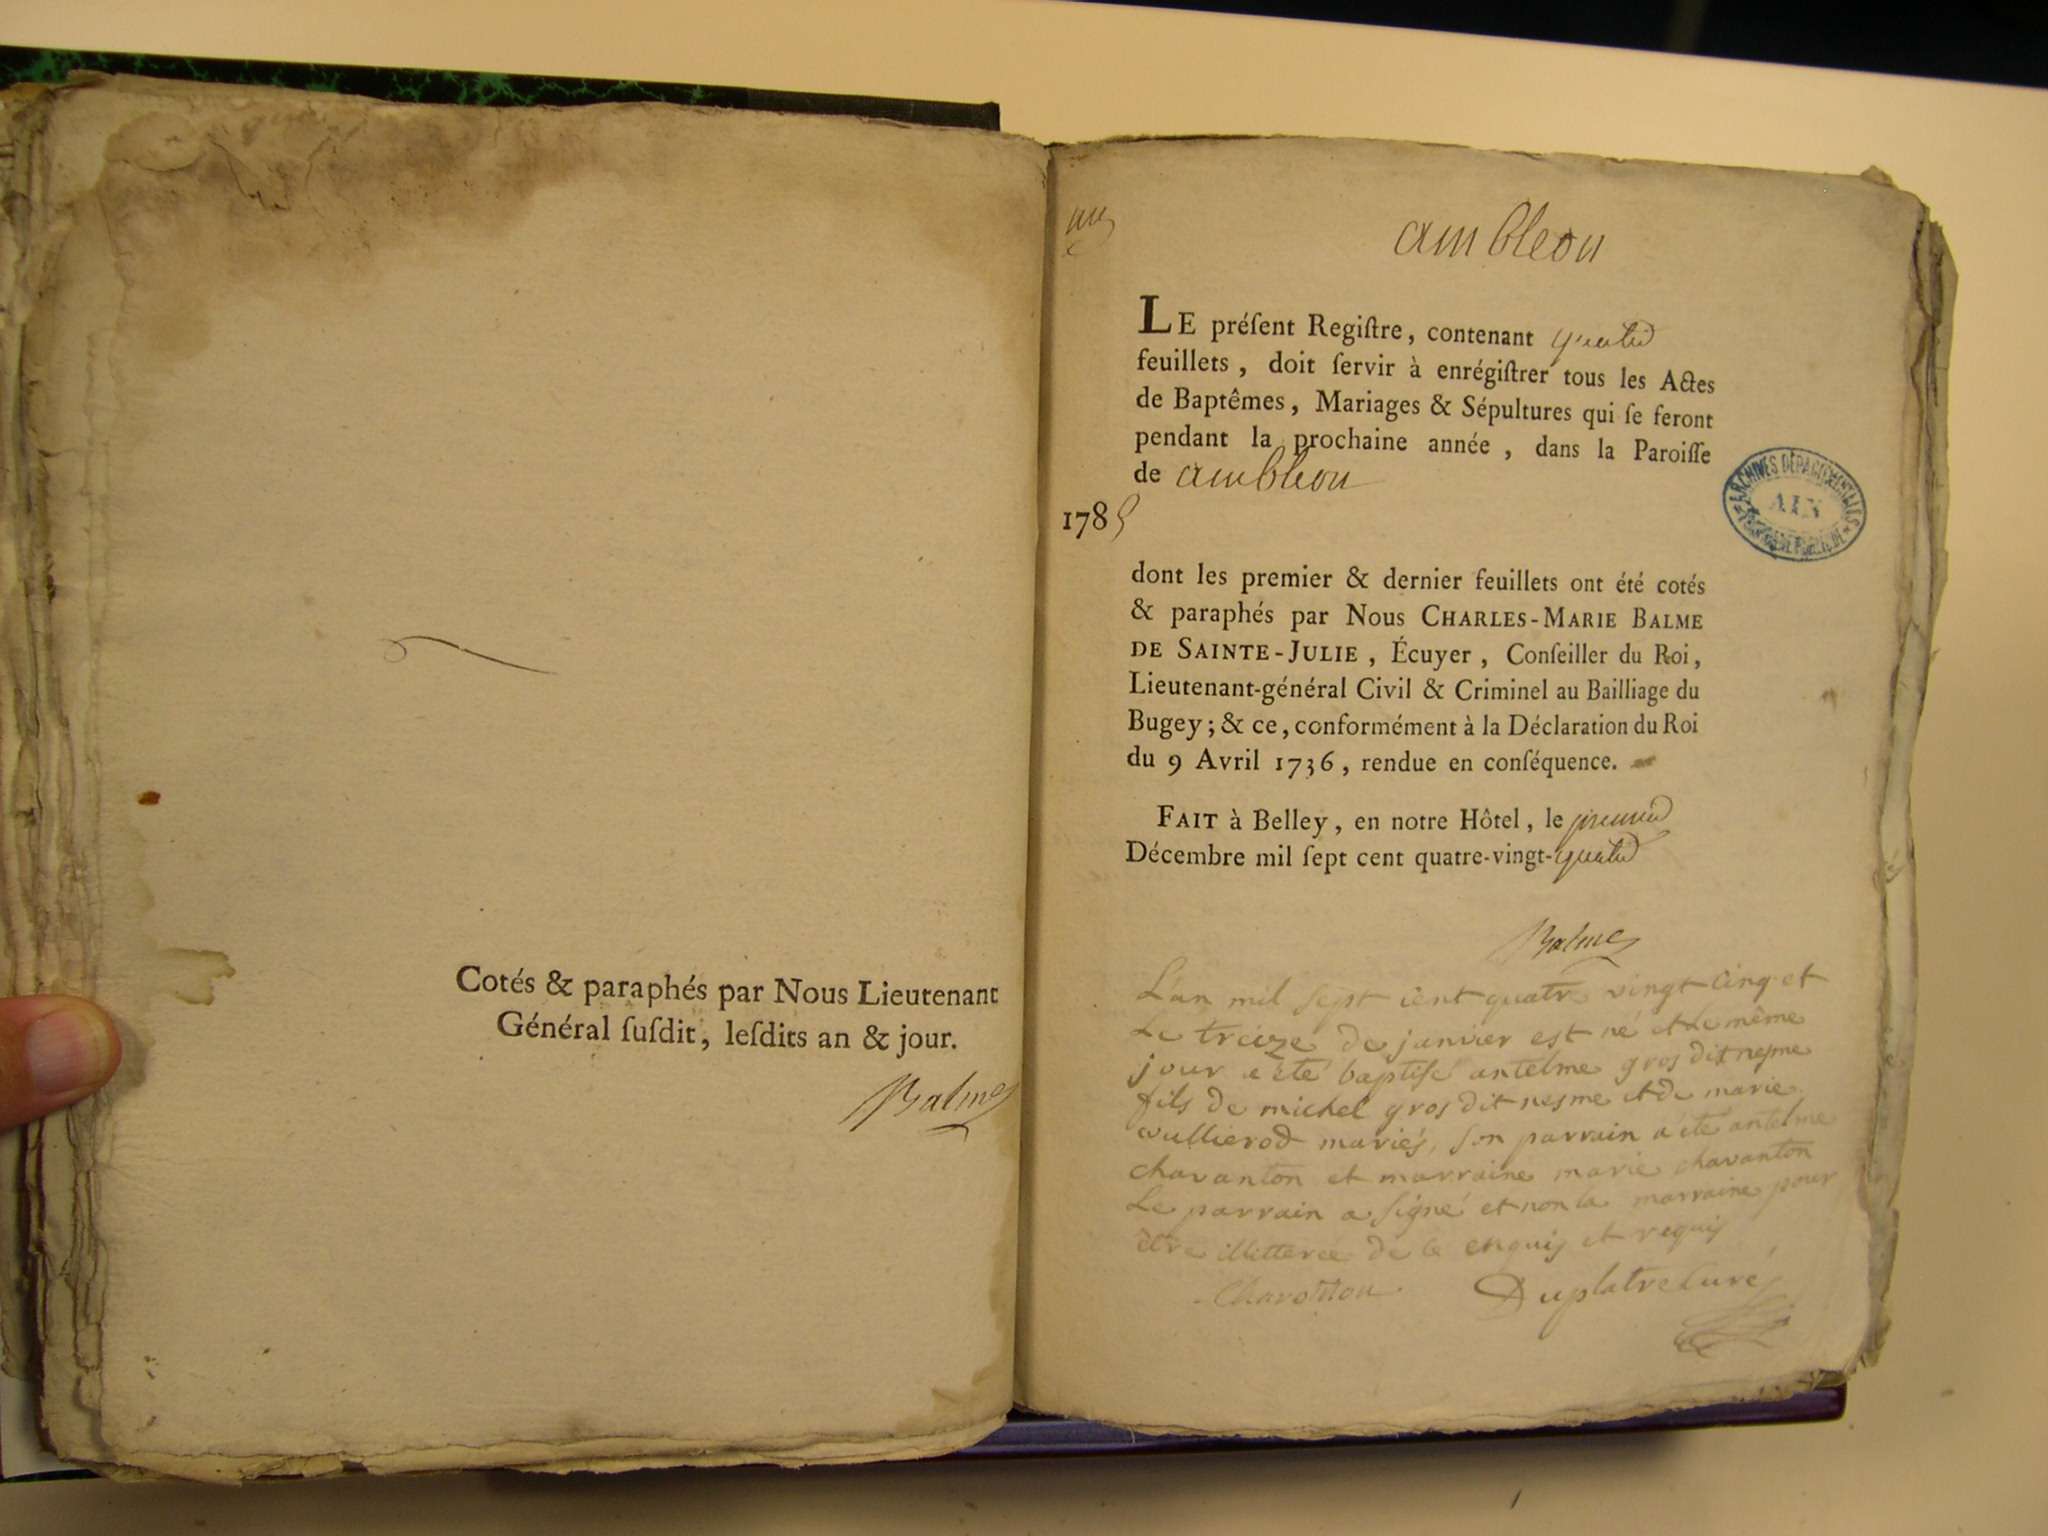 Cotés & paraphés par Nous Lieutenant
Général ſuſdit, leſdits an & jour.
Balme
ambleon
LE préſent Regiſtre, contenant quatre
feuillets, doit ſervir à enrégiſtrer tous les Actes
de Baptêmes, Mariages & Sépultures qui ſe feront
pendant la prochaine année, dans la Paroiſſe
de ambleon
1785
dont les premier & dernier feuillets ont été cotés
& paraphés par Nous CHARLES-MARIE BALME
DE SAINTE-JULIE, Écuyer, Conſeiller du Roi,
Lieutenant-général Civil & Criminel au Bailliage du
Bugey; & ce, conformément à la Déclaration du Roi
du 9 Avril 1736, rendue en conſéquence.
FAIT à Belley, en notre Hôtel, le premier
Décembre mil ſept cent quatre-vingt-quatre
Balme
L'an mil sept cent quatre vingt cinq et
Le treize de janvier est né et le même
jour a été baptisé antelme gros dit nesme
fils de michel gros dit nesme et de marie
vullierod mariés, son parrain a été antelme
chavanton et marraine marie chavanton
Le parrain a signé et non la marraine pour
être illitteree de ce enquis et requis
Duplatre Curé
ARCHIVES DÉPARTEMENTALES
AIN